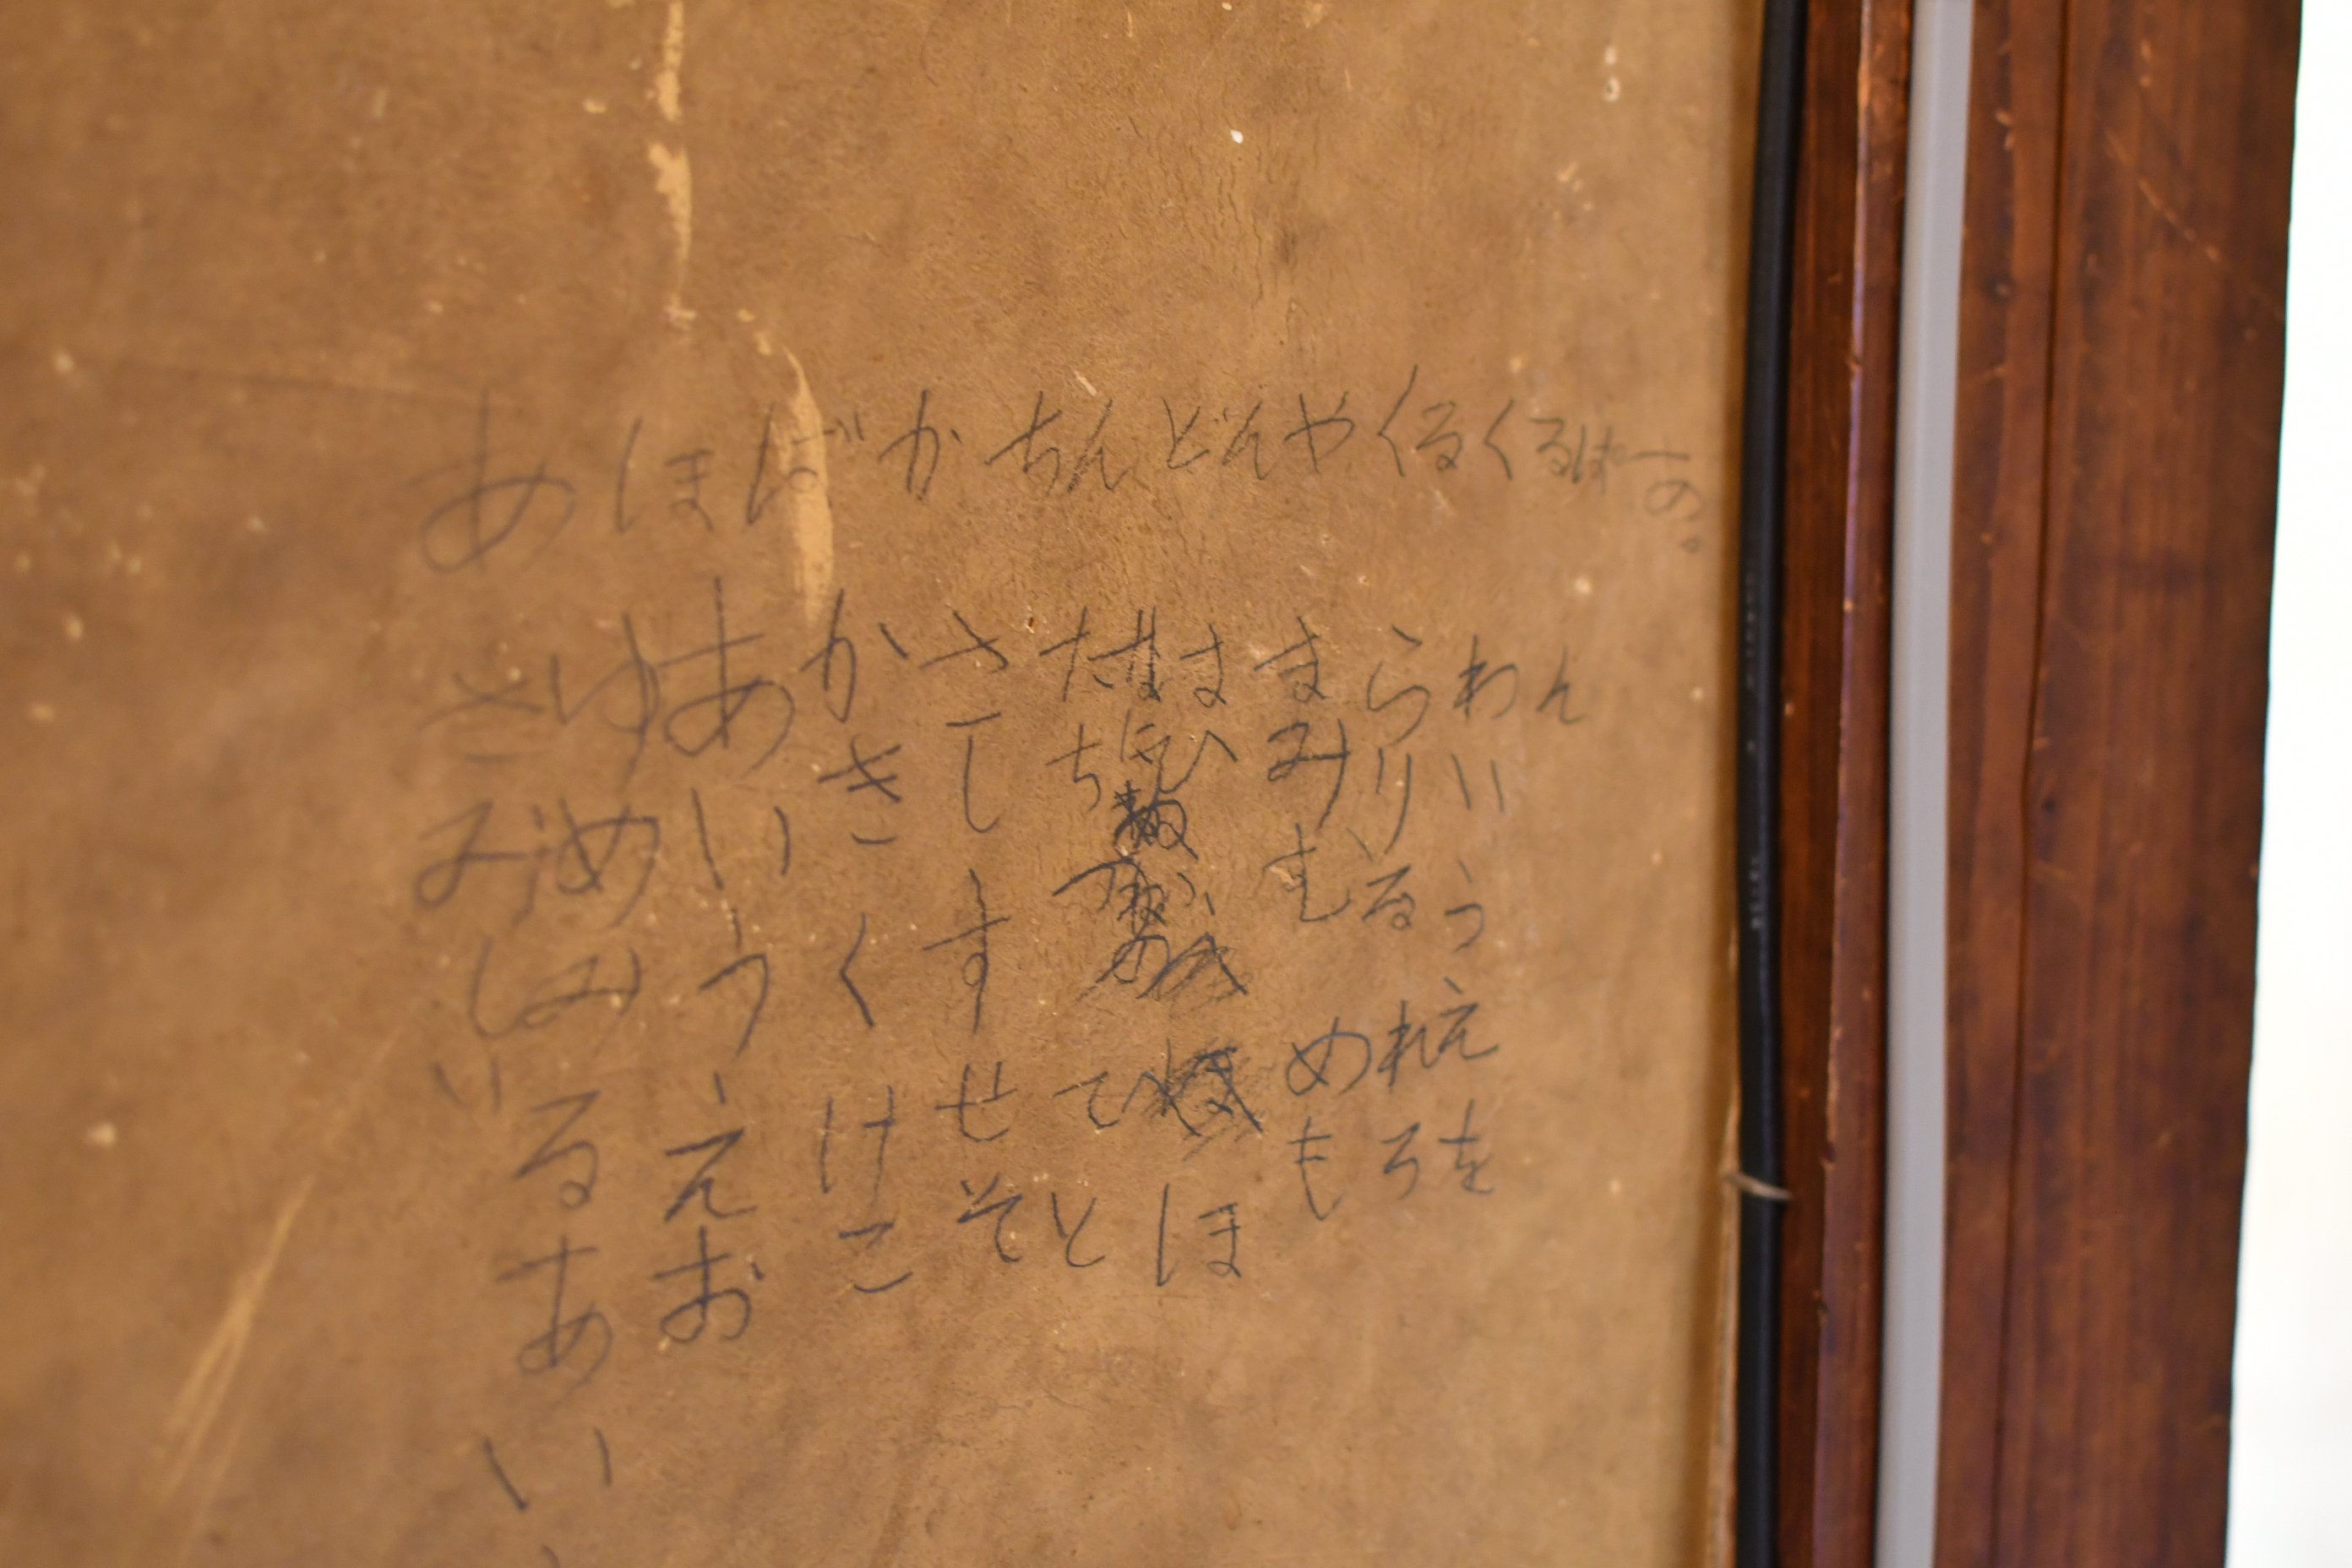 あほばかちんどんやくるくるぱーの。
さみしい
ゆめみるあい
あいうえお
かきくけこ
さしすせそ
たちつてと
なに
はひほ
まみむめも
らりるれろ
わいうえを
ん